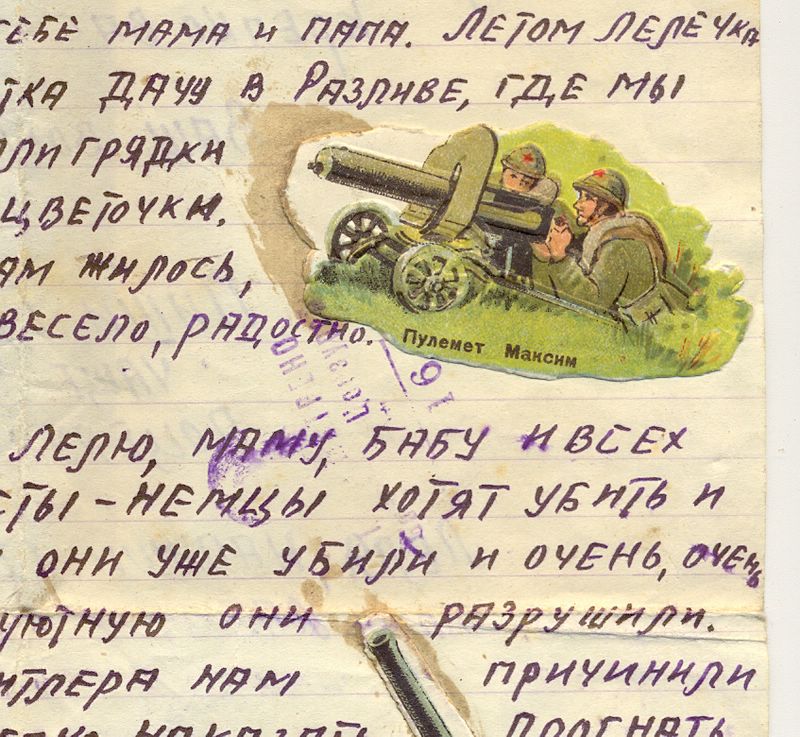 ТЕБЕ МАМА И ПАПА. ЛЕТОМ ЛЕЛЕЧКА
ТКА ДАЧУ В РАЗЛИВЕ, ГДЕ МЫ
ЛИ ГРЯДКИ
ЦВЕТОЧКИ.
АМ ЖИЛОСЬ,
ВЕСЕЛО, РАДОСТНО.
Пулемет Максим
ЛЕЛЮ, МАМУ, БАБУ И ВСЕХ
СТЫ - НЕМЦЫ ХОТЯТ УБИТЬ И
ОНИ УЖЕ УБИЛИ И ОЧЕНЬ, ОЧЕНЬ
УЮТНУЮ ОНИ РАЗРУШИЛИ.
ИТЛЕРА НАМ ПРИЧИНИЛИ
НАКАЗАТЬ ПРОГНАТЬ